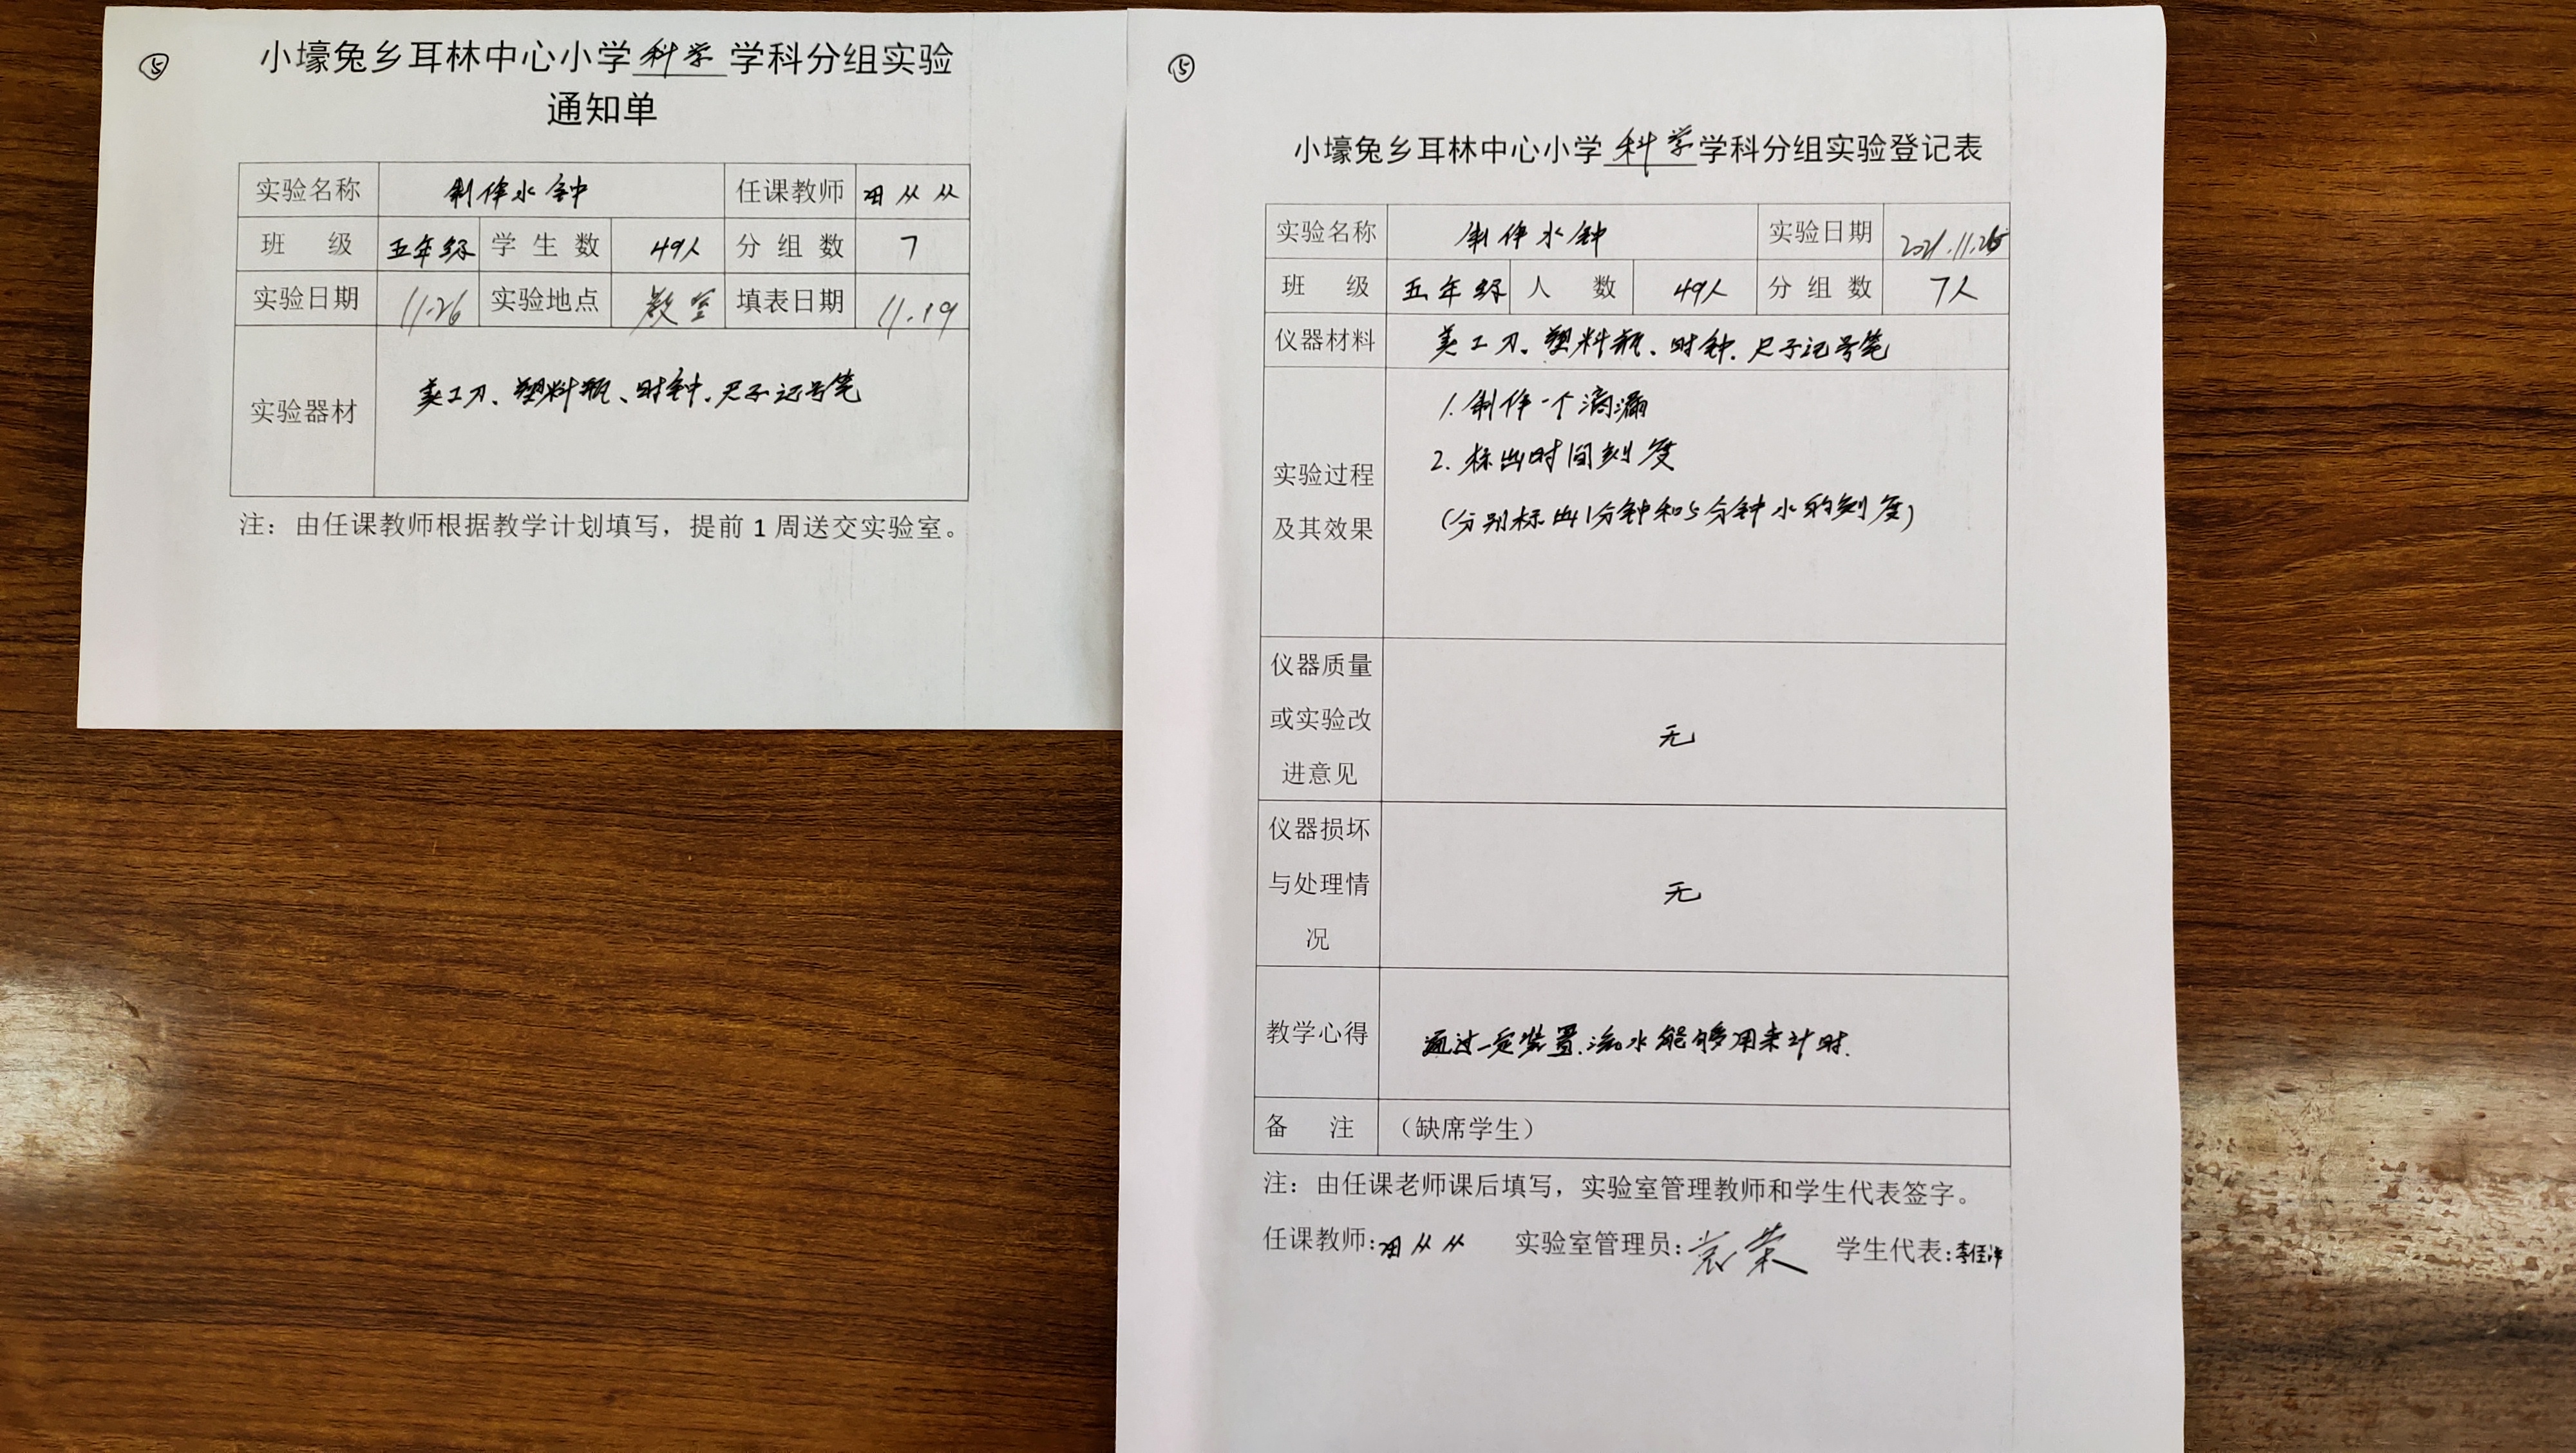 ⑤
小壕兔乡耳林中心小学科学学科分组实验
通知单
实验名称 制作水钟 任课教师 丛丛
班 级 五年级 学生数 49人 分组数 7
实验日期 11.26 实验地点 教室 填表日期 11.19
实验器材 美工刀、塑料瓶、时钟、尺子记号笔
注：由任课教师根据教学计划填写，提前1周送交实验室。
⑤
小壕兔乡耳林中心小学科学学科分组实验登记表
实验名称 制作水钟 实验日期 2021.11.26
班 级 五年级 人 数 49人 分组数 7人
仪器材料 美工刀、塑料瓶、时钟、尺子记号笔
实验过程
及其效果
1.制作一个滴漏
2.标出时间刻度
（分别标出1分钟和5分钟水的刻度）
仪器质量
或实验改
进意见
无
仪器损坏
与处理情
况
无
教学心得 通过一定装置.流水能够用来计时.
备 注 （缺席学生）
注：由任课老师课后填写，实验室管理教师和学生代表签字。
任课教师: 丛丛 实验室管理员: 学生代表: 李佳